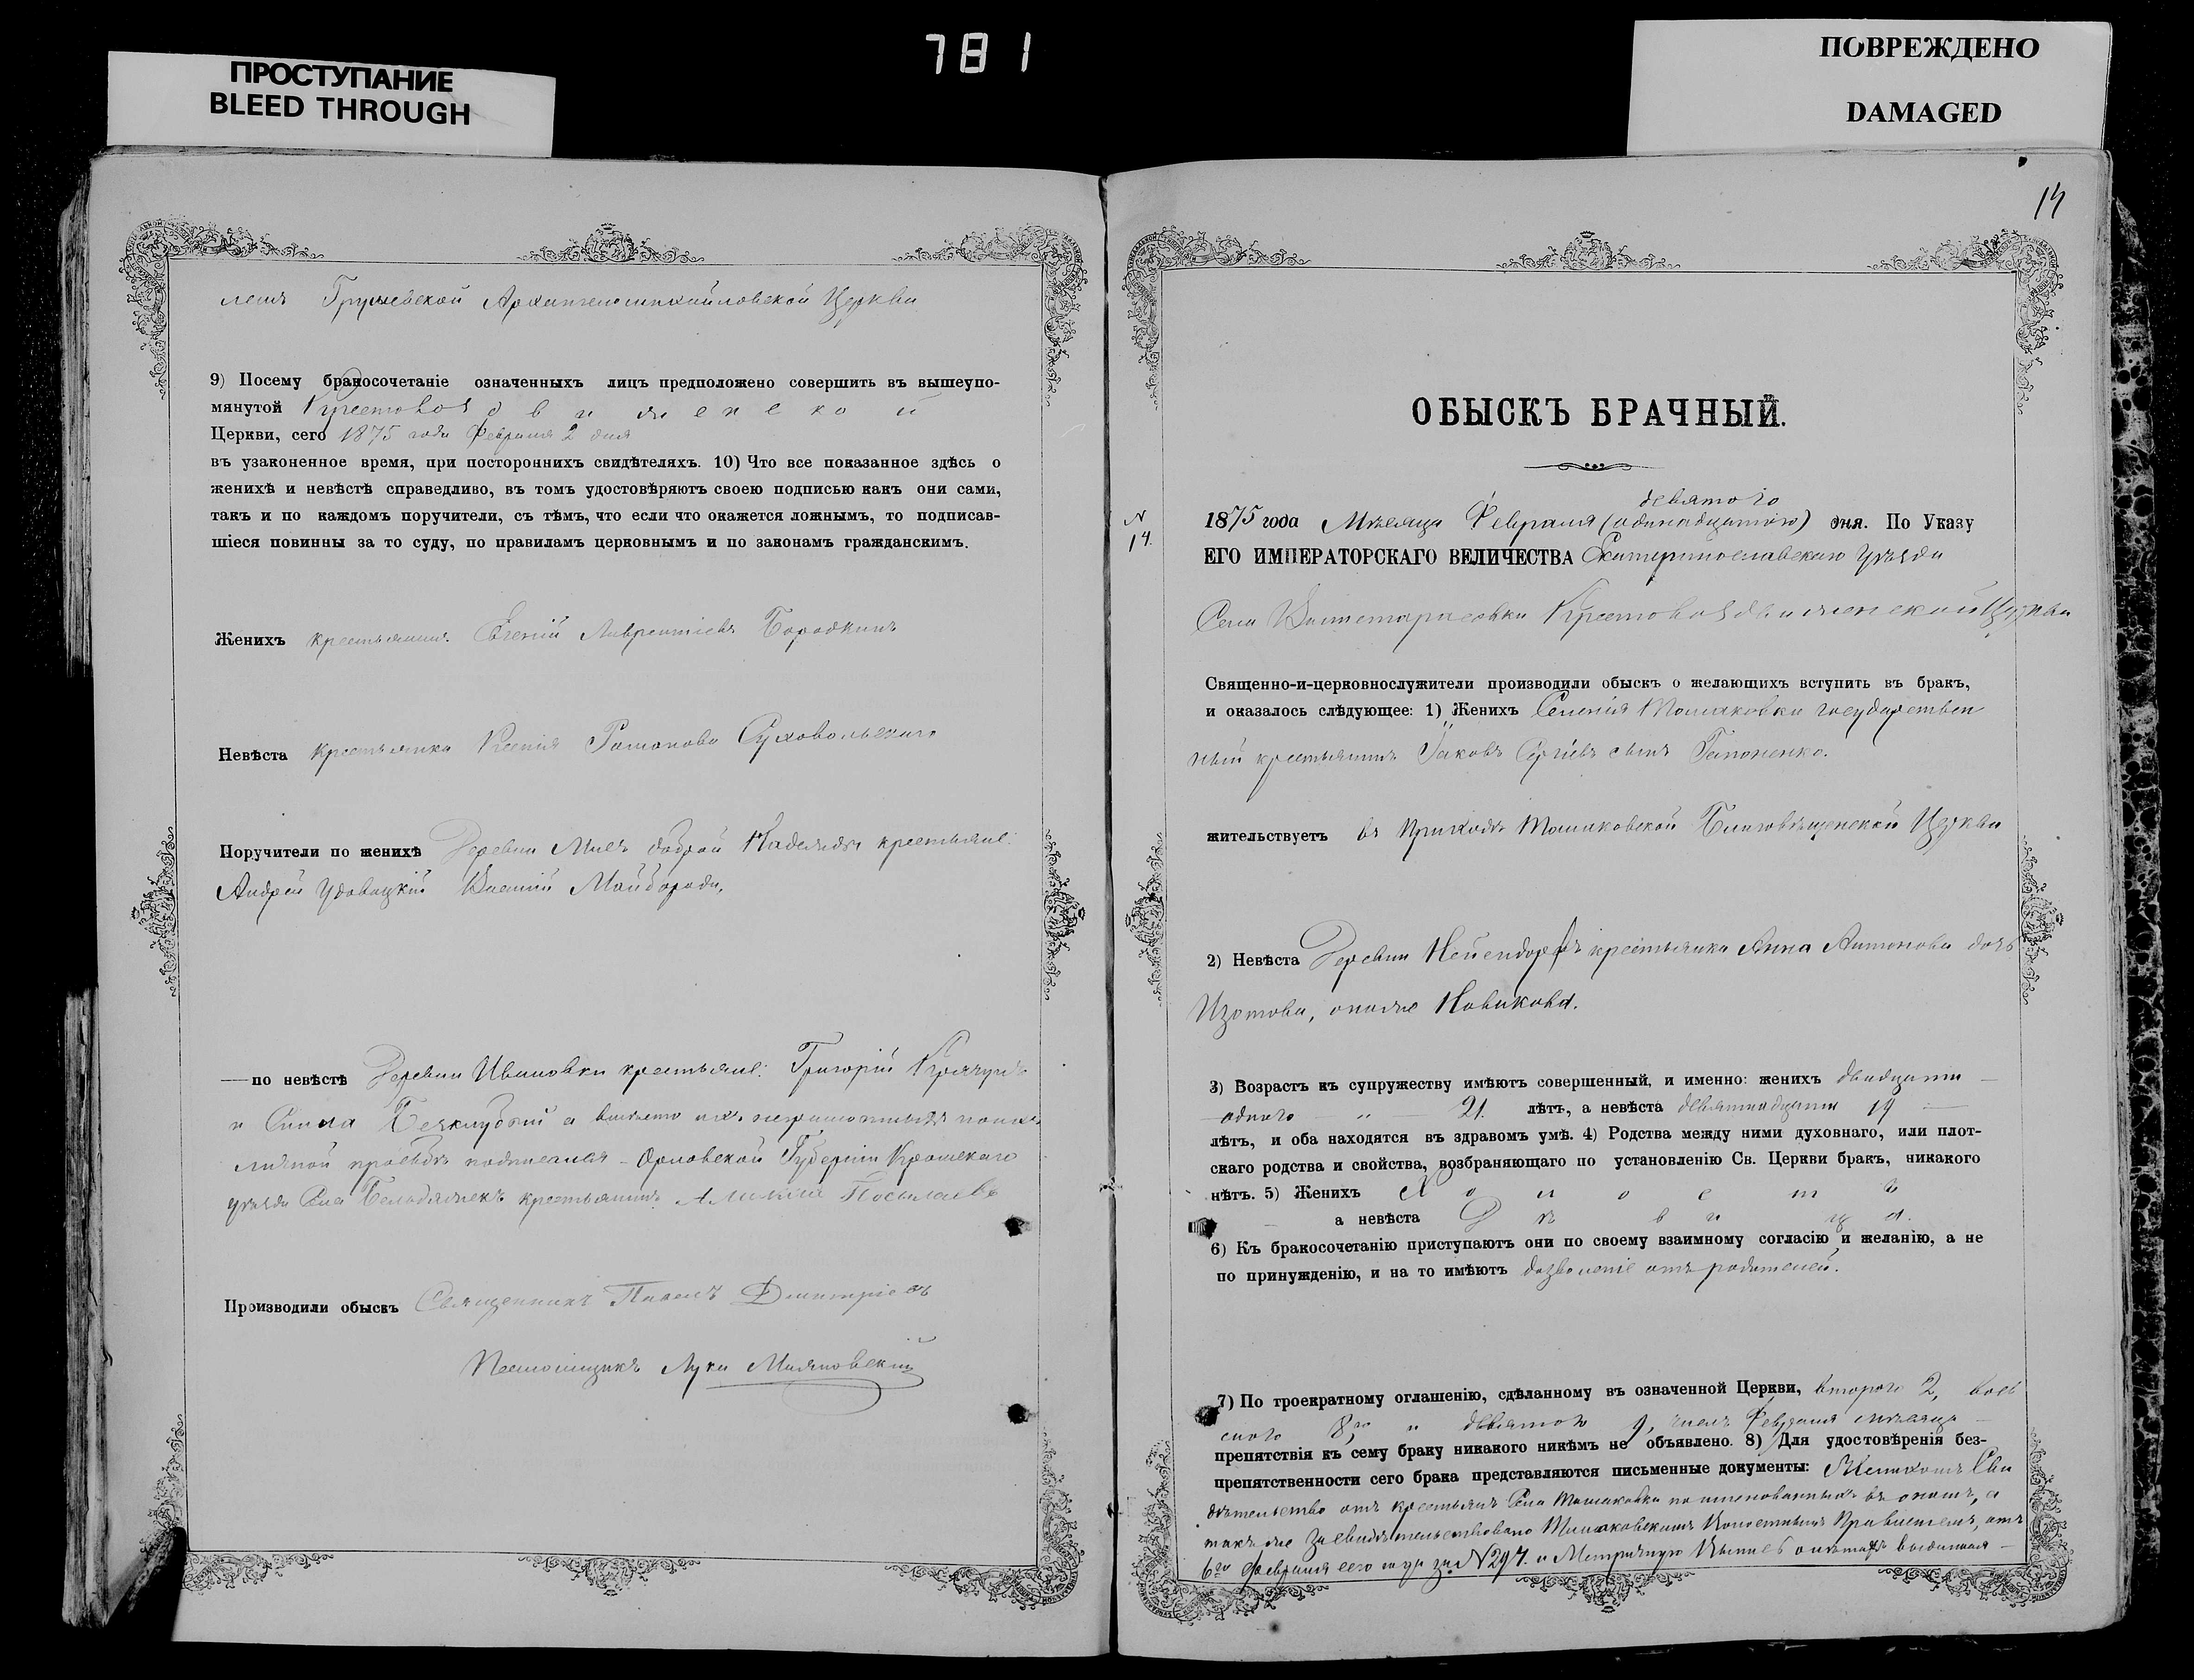 781
ПРОСТУПАНИЕ
BLEED THROUGH
ПОВРЕЖДЕНО
DAMAGED
лемъ Грушевской Архангеломихайловской Церкви
9) Посему бракосочетаніе означенныхъ лицъ предположено совершить въ вышеупо-
мянутой Крестовоздвиженской
Церкви, сего 1875 года Февраля 2 дня
въ узаконенное время, при постороннихъ свидѣтеляхъ. 10) Что все показанное здѣсь о
женихѣ и невѣстѣ справедливо, въ томъ удостовѣряютъ своею подписью какъ они сами,
такъ и по каждомъ поручители, съ тѣмъ, что если что окажется ложнымъ, то подписав-
шіеся повинны за то суду, по правиламъ церковнымъ и по законамъ гражданскимъ.
Женихъ крестьянинъ Евгеній Лаврентіевъ Бородкинъ
Невѣста крестьянка Ксенія Романова Суховольскаго
Поручители по женихѣ Деревни Мысъ доброй Надежды крестьяне:
Андрей Удовицкій Василій Майборода,
— по невѣстѣ Деревни Ивановки крестьяне: Григорій
и а вмѣсто ихъ неграмотныхъ по ихъ
личной прозьбѣ подписался - Орловской Губерніи Кромскаго
уѣзда Села крестьянинъ
Производили обыскъ Священникъ Павелъ Дмитріевъ
Псаломщикъ Лука
14
ОБЫСКЪ БРАЧНЫЙ.
девятого
N 14.
1875 года Мѣсяца Февраля (одинадцатого) дня. По Указу
ЕГО ИМПЕРАТОРСКАГО ВЕЛИЧЕСТВА Екатеринославскаго уѣзда
Села Крестовоздвиженской Церкви
Священно-и-церковнослужители производили обыскъ о желающихъ вступить въ бракъ,
и оказалось слѣдующее: 1) Женихъ Селенія Томаковки государствен
ный крестьянинъ Іаковъ Сергіевъ сынъ Гапоненко.
жительствуетъ въ приходѣ Томаковской Благовѣщенской Церкви
2) Невѣста Деревни Нейендорфъ крестьянка Анна Антонова дочь
Изотова, онаже Новикова.
3) Возрастъ къ супружеству имѣютъ совершенный, и именно: женихъ двадцати —
— одного " — 21. лѣтъ, а невѣста девятнадцати 19 —
лѣтъ, и оба находятся въ здравомъ умѣ. 4) Родства между ними духовнаго, или плот-
скаго родства и свойства, возбраняющаго по установленію Св. Церкви бракъ, никакого
нѣтъ. 5) Женихъ Холостъ
а невѣста Дѣвица.
6) Къ бракосочетанію приступаютъ они по своему взаимному согласію и желанію, а не
по принужденію, и на то имѣютъ дозволеніе отъ родителей.
7) По троекратному оглашенію, сдѣланному въ означенной Церкви, второго 2, вось
мого 8, и девятого 9, числъ Февраля мѣсяца —
препятствія къ сему браку никакого никѣмъ не объявлено. 8) Для удостовѣренія без-
препятственности сего брака представляются письменные документы: Женихомъ Сви
дѣтельство отъ крестьянъ Села Томаковки поименованныхъ въ ономъ, а
такъ же засвидѣтельствовано Томаковскимъ Волостнымъ Правленіемъ, отъ
6го Февраля сего года за N 297. и Метричную Выпись о лѣтахъ выданная —